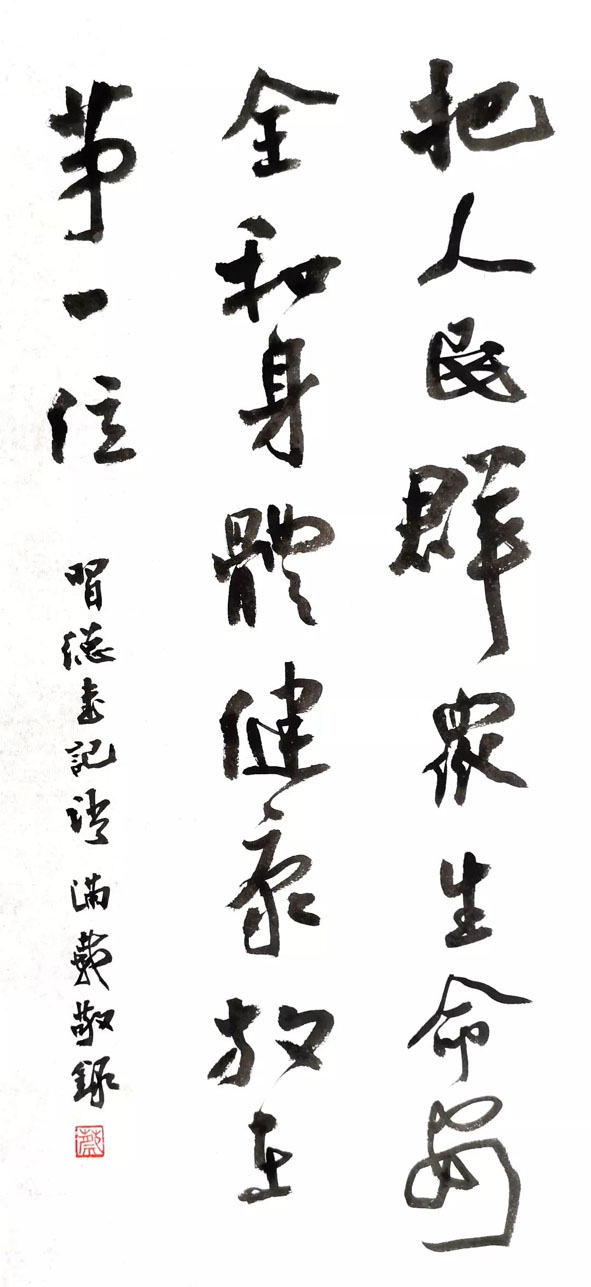 把人民群眾生命安
全和身體健康放在
第一位
習總書記語 满戴敬録